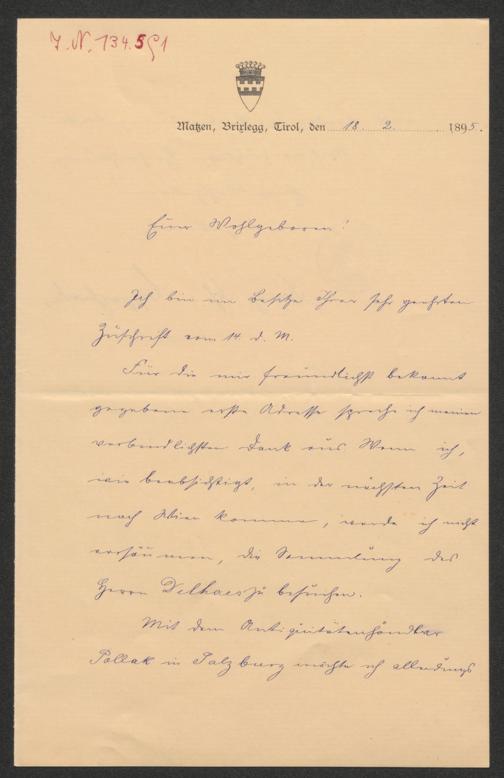 I. N. 134.591
Matzen, Brixlegg, Tirol, den 18. 2. 1895.
Euer Wohlgeboren!
Ich bin im Besitze Ihrer sehr geehrten
Zuschrift vom 14. d. M.
Für die mir freundlichst bekannt
gegebene erste Adresse spreche ich meinen
verbindlichsten Dank aus. Wenn ich,
wie beabsichtigt, in der nächsten Zeit
nach Wien komme, werde ich nicht
versäumen, die Sammlung des
Herrn Delhaes zu besuchen.
Mit dem Antiquitätenhändler
Pollak in Salzburg möchte ich allerdings